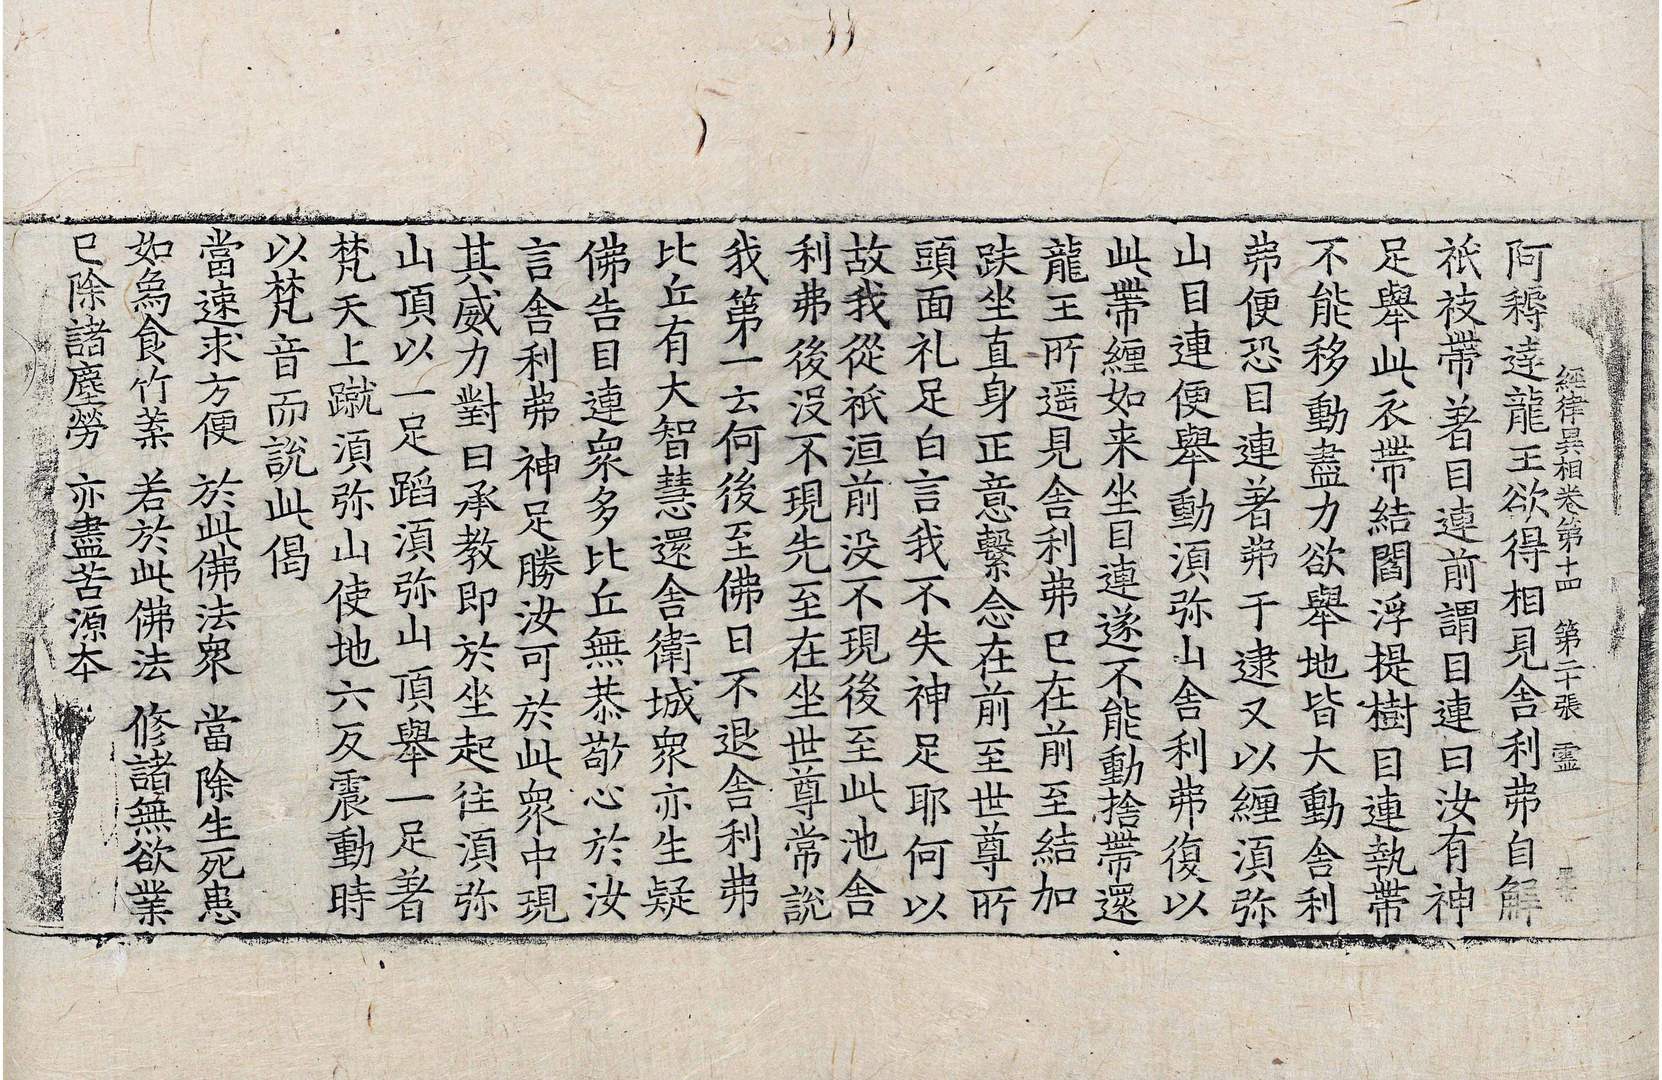 經律異相卷第十四　第二十張　靈
阿耨達龍王欲得相見舍利弗自解
祇衼帶著目連前謂目連曰汝有神
足擧此衣帶結閻浮提樹目連執帶
不能移動盡力欲擧地皆大動舍利
弗便恐目連著弗于逮又以纏湏弥
山目連便擧動湏弥山舍利弗復以
此帶纏如来坐目連遂不能動捨帶還
龍王所遥見舍利弗已在前至結加
趺坐直身正意繫念在前至世尊所
頭面礼足白言我不失神足耶何以
故我從祇洹前没不現後至此池舍
利弗後没不現先至在坐世尊常説
我第一云何後至佛曰不退舍利弗
比丘有大智慧還舍衛城衆亦生疑
佛告目連衆多比丘無恭敬心於汝
言舍利弗神足勝汝可於此衆中現
其威力對曰承教即於坐起往湏弥
山頂以一足蹈湏弥山頂擧一足著
梵天上蹴湏弥山使地六反震動時
以梵音而説此偈
當速求方便　於此佛法衆　當除生死患
如鳥食竹葉　若於此佛法　修諸無欲業
已除諸塵勞　亦盡苦源本